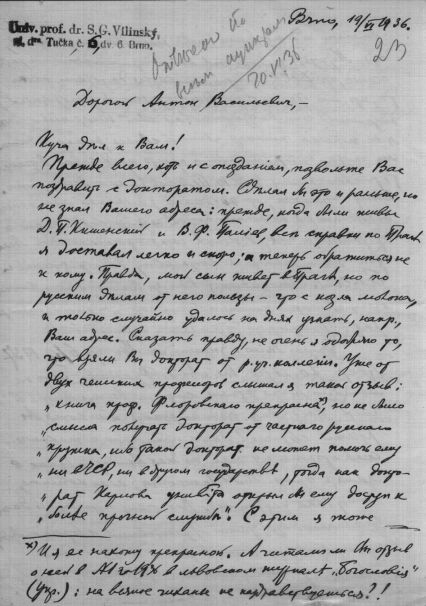 Univ. prof. dr. S. G. Vilinský,
nl. dra Tučka č. 6, dv. 6. Brno.
Brno, 19/VI 1936.
20.VI.36
23
Дорогой Антон Васильевич, –
Куча дел к Вам!
Прежде всего, хоть и с опозданием, позвольте Вас
поздравить с докторатом. Сделал бы это и раньше, но
не знал Вашего адреса: прежде, когда были живы
Д. П. Кишенский и В. Ф. все справки по Праге
я доставал легко и скоро; а теперь обратиться не
к кому. Правда, мой сын живет в Праге, но по
русским делам от него пользы – что с козла молока,
и только случайно удалось на днях узнать, напр.,
Ваш адрес. Сказать правду, не очень я одобряю то,
что взяли Вы докторат от р. уч. коллегии. Уже от
двух чешских профессоров слышал я такой отзыв:
„книга проф. Флоровского прекрасна*), но не было
„смысла получать докторат от частного русского
„кружка, ибо такой докторат не может помочь ему
„ни в ЧСР, ни в другом государстве, тогда как докто-
„рат Карлова унив-та открыл бы ему доступ к
„более прочной службе". С этим я тоже
*) И я ее нахожу прекрасной. А читали ли Вы отзыв
о ней в львовском журнале „Богословія"
(укр.): на всякое чиханье не наздравствуешься?!